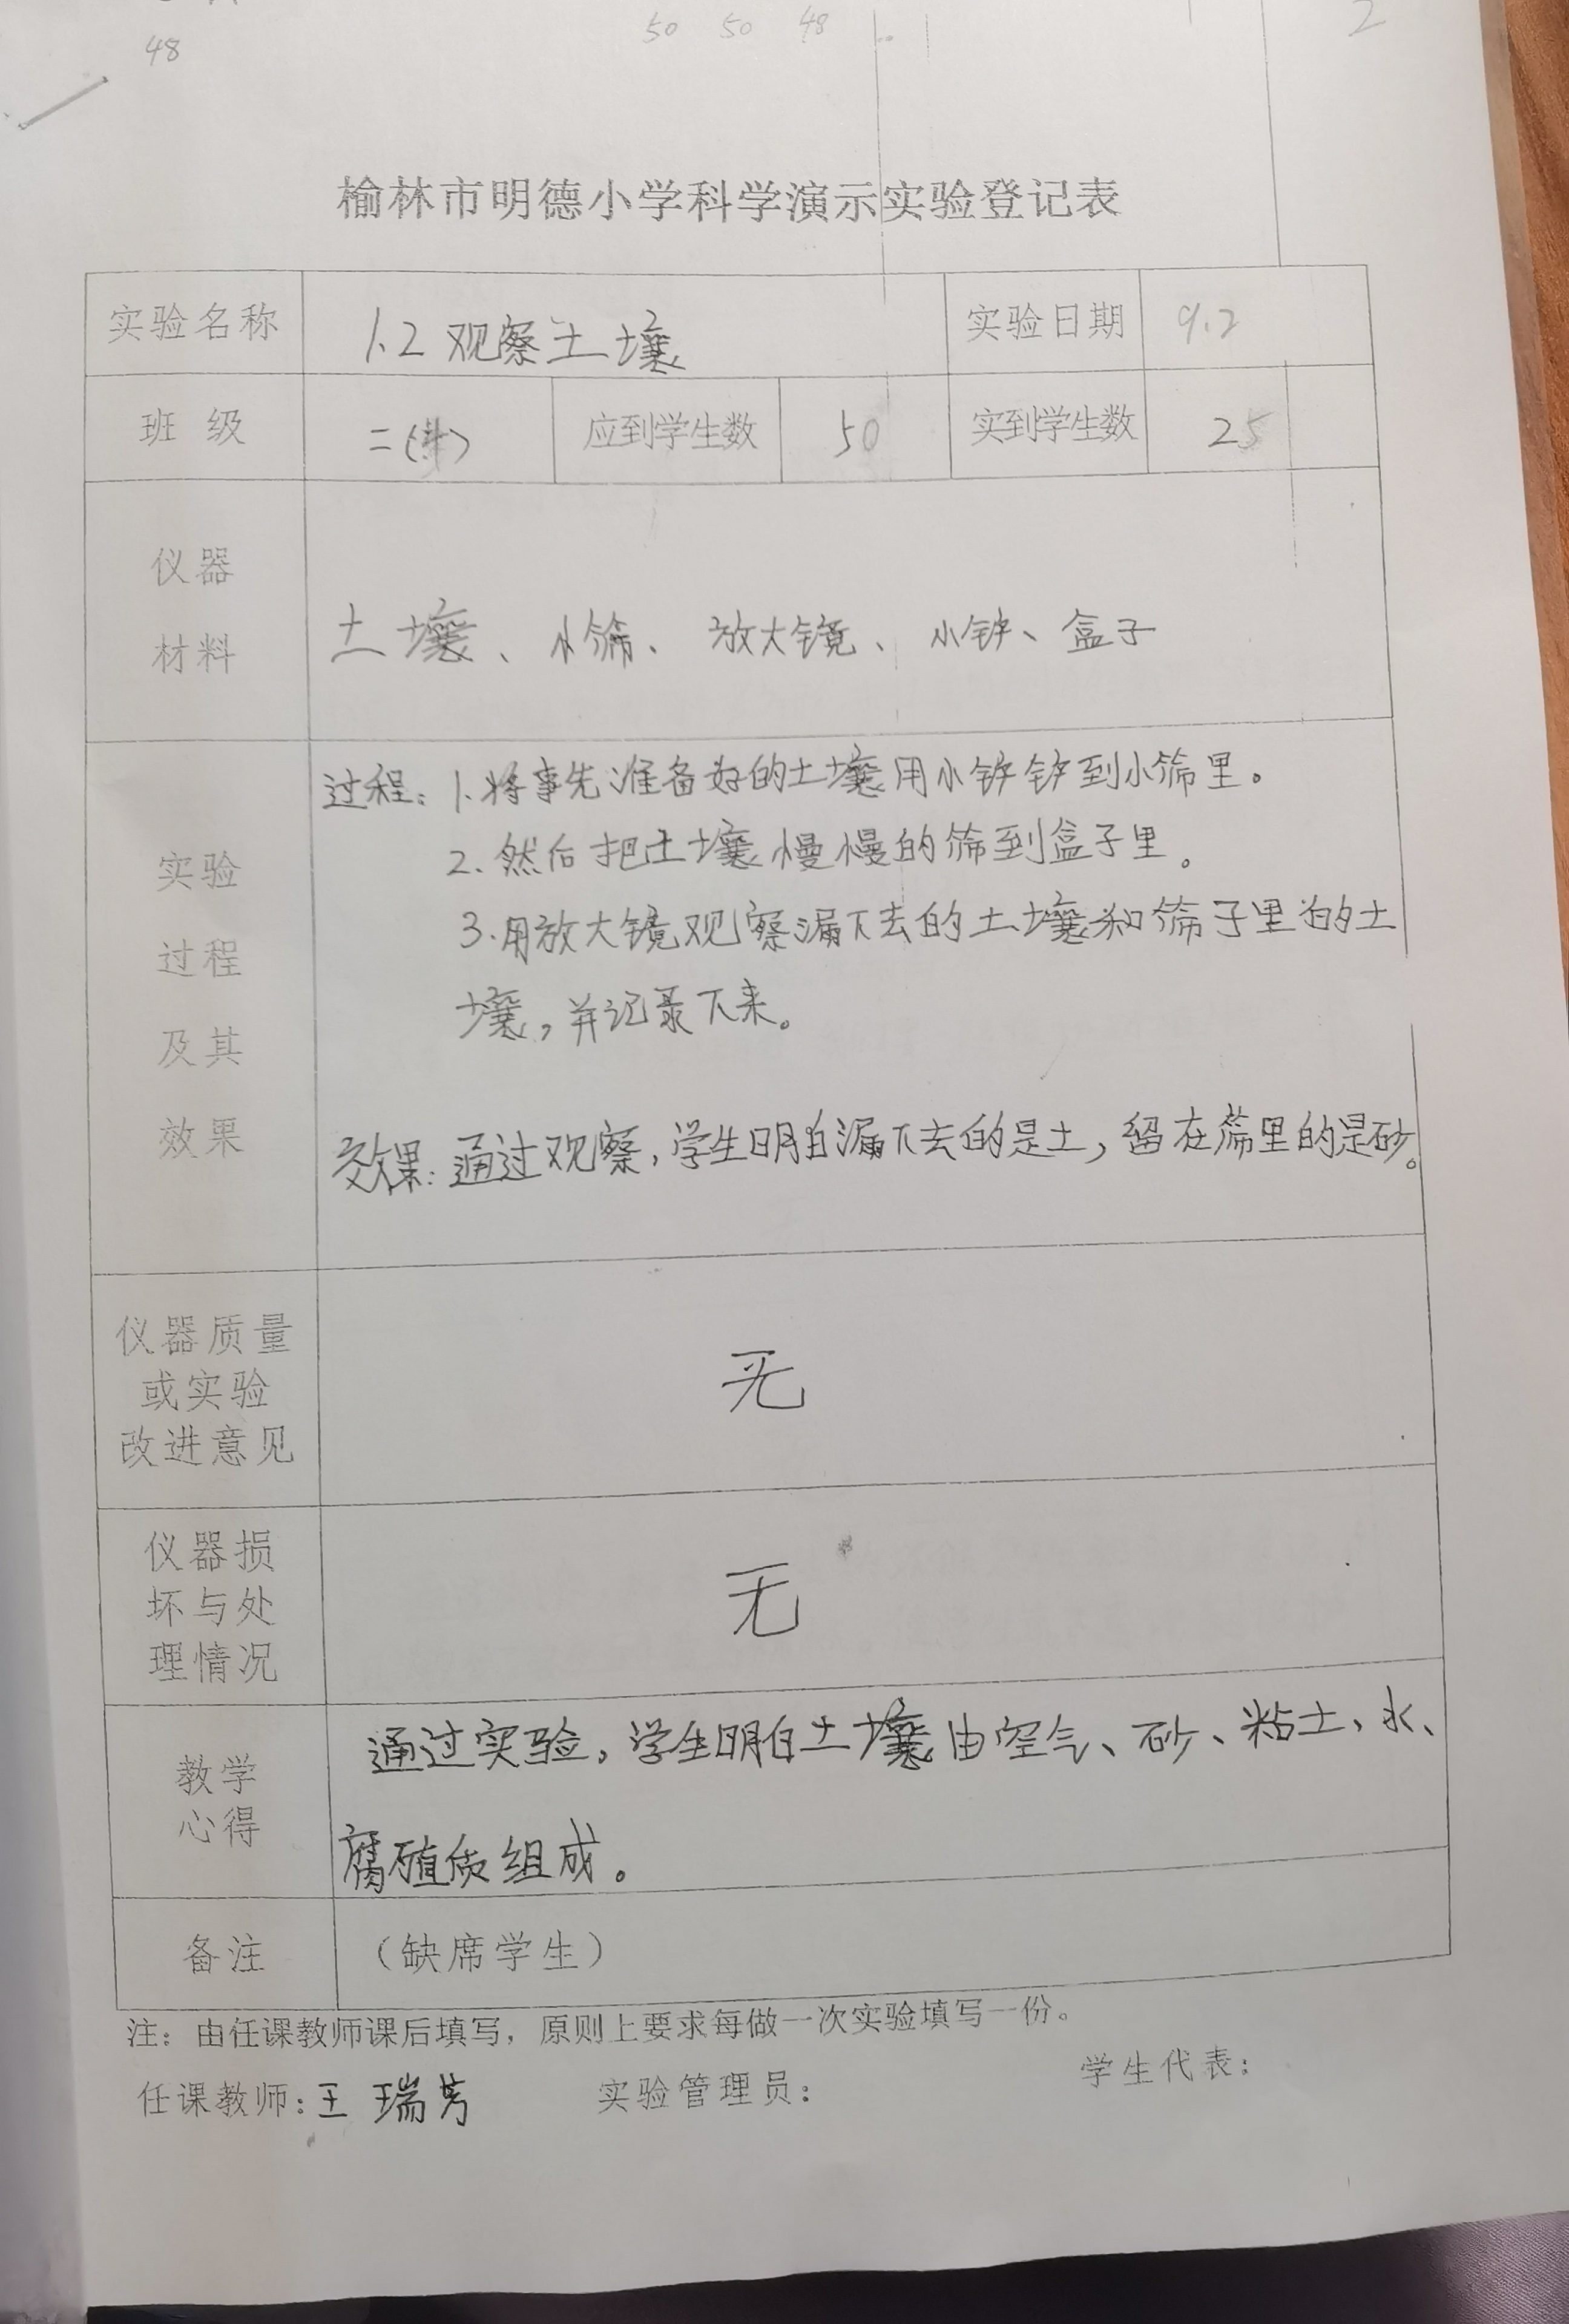 48
50 50 48
2
榆林市明德小学科学演示实验登记表
实验名称 1.2 观察土壤 实验日期 9.2
班 级 二 应到学生数 50 实到学生数 25
仪器
材料
土壤、小筛、放大镜、小铲、盒子
实验
过程
及其
效果
过程：1.将事先准备好的土壤用小铲铲到小筛里。
2.然后把土壤慢慢的筛到盒子里。
3.用放大镜观察漏下去的土壤和筛子里的土
壤，并记录下来。
效果：通过观察，学生明白漏下去的是土，留在筛里的是砂。
仪器质量
或实验
改进意见
无
仪器损
坏与处
理情况
无
教学
心得
通过实验，学生明白土壤由空气、砂、粘土、水、
腐殖质组成。
备注 （缺席学生）
注：由任课教师课后填写，原则上要求每做一次实验填写一份。
任课教师：王瑞芳 实验管理员： 学生代表：